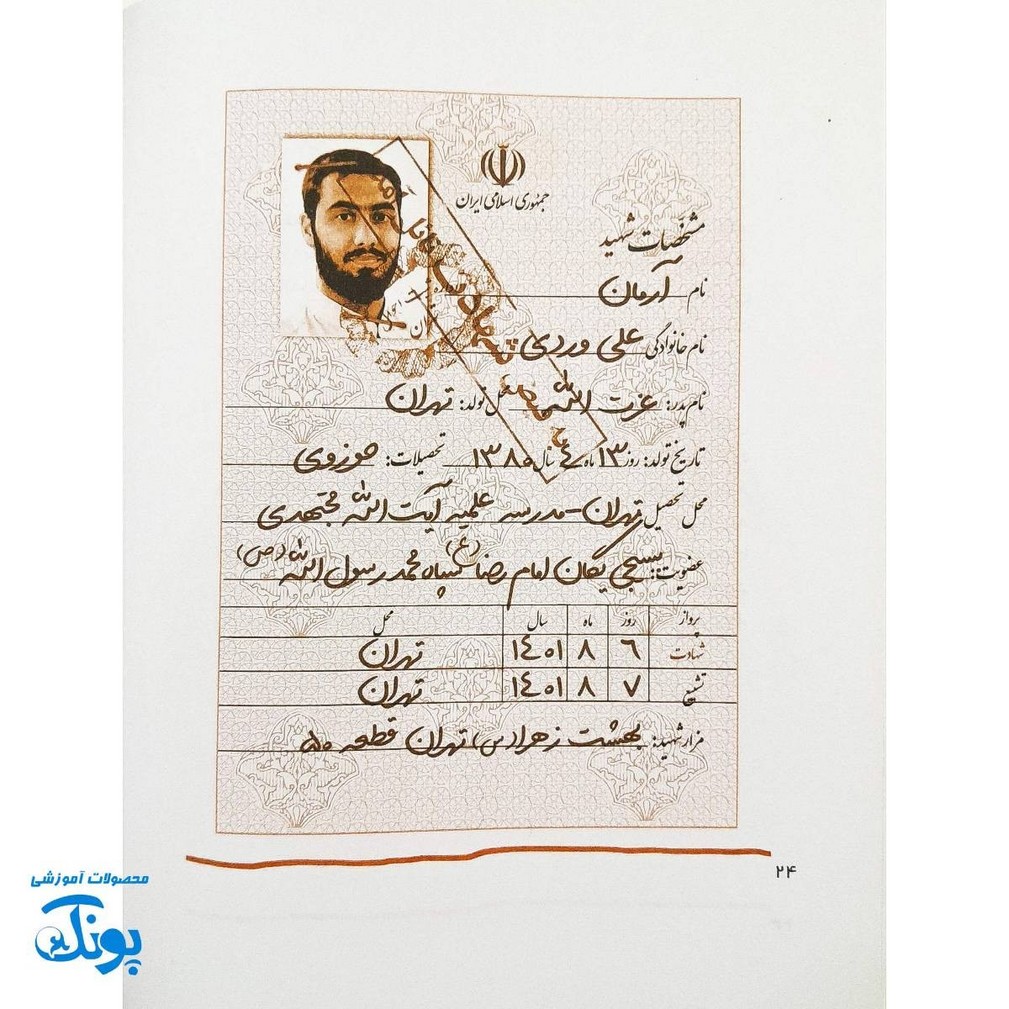 جمهوری اسلامی ایران
مشخصات شهید
نام آرمان
نام خانوادگی علی وردی
نام پدر: عزت الله محل تولد: تهران
تاریخ تولد: روز ۱۳ ماه ٤ سال ۱۳۸۰ تحصیلات: حوزوی
محل تحصیل تهران-مدرسه علمیه آیت الله مجتهدی
عضویت: بسیجی یگان امام رضا (ع) سپاه محمد رسول الله (ص)
پرواز روز ماه سال محل
شهادت ٦ ۸ ۱٤۰۱ تهران
تشییع ۷ ۸ ۱٤۰۱ تهران
مزار شهید: بهشت زهرا (س) تهران قطعه ۵۰
۲۴
محصولات آموزشی
پونک